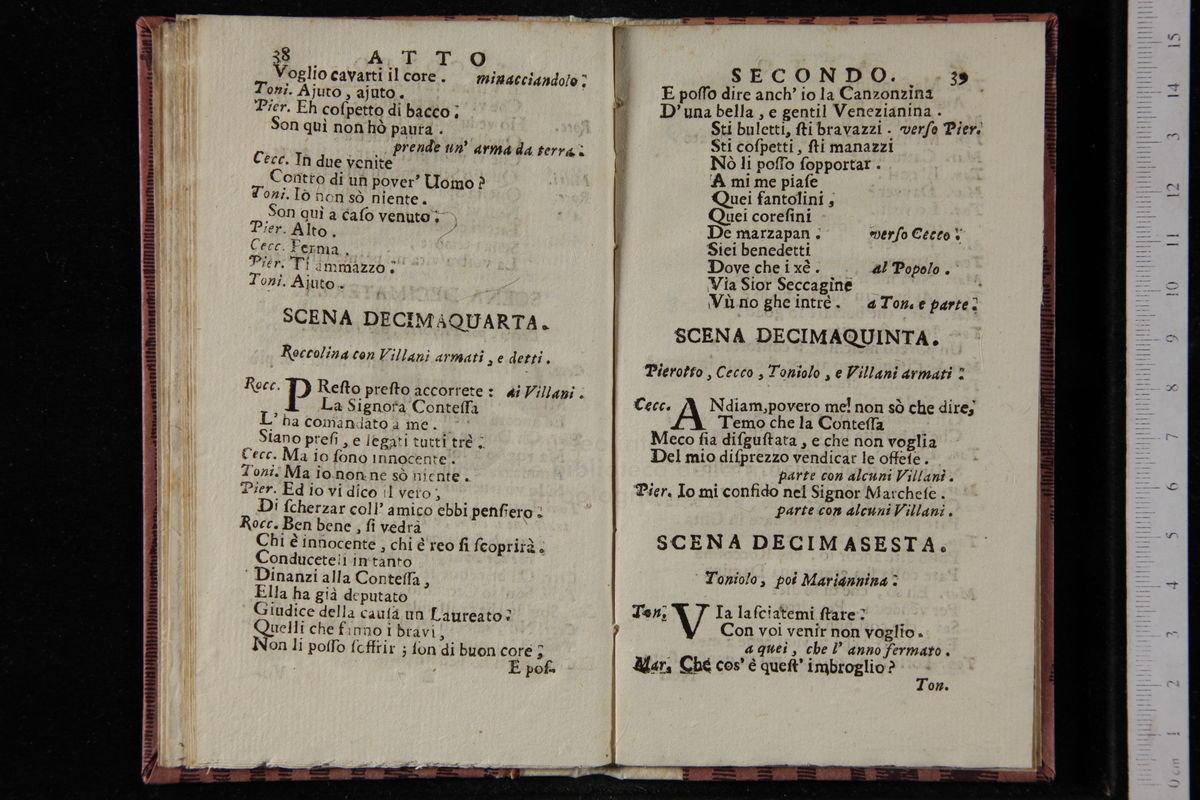 38 ATTO
Voglio cavarti il core . minacciandolo .
Toni. Ajuto , ajuto .
Pier. Eh coſpetto di bacco .
Son quì non hò paura .
prende un' arma da terra .
Cecc. In due venite
Contro di un pover' Uomo ?
Toni. Iò non sò niente .
Son quì a caſo venuto .
Pier. Alto .
Cecc. Ferma .
Pier. Ti ammazzo .
Toni. Ajuto .
SCENA DECIMAQUARTA.
Roccolina con Villani armati , e detti .
Rocc. PReſto preſto accorrete : ai Villani .
La Signora Conteſſa
L' ha comandato a me .
Siano preſi , e legati tutti trè .
Cecc. Ma io ſono innocente .
Toni. Ma io non ne sò niente .
Pier. Ed io vi dico il vero ,
Di ſcherzar coll' amico ebbi penſiero .
Rocc. Ben bene , ſi vedrà
Chi è innocente , chi è reo ſi ſcoprirà .
Conduceteli in tanto
Dinanzi alla Conteſſa ,
Ella ha già deputato
Giudice della cauſa un Laureato .
Quelli che fanno i bravi ,
Non li poſſo ſoffrir ; ſon di buon core ;
E poſ-
SECONDO. 39
E poſſo dire anch' io la Canzonzina
D'una bella , e gentil Venezianina .
Sti buletti, ſti bravazzi . verſo Pier.
Sti coſpetti , ſti manazzi
Nò li poſſo ſopportar .
A mi me piaſe
Quei fantolini ,
Quei coreſini
De marzapan . verſo Cecco .
Siei benedetti
Dove che i xè . al Popolo .
Via Sior Seccagine
Vù no ghe intrè . a Ton. e parte .
SCENA DECIMAQUINTA.
Pierotto , Cecco , Toniolo , e Villani armati .
Cecc. ANdiam, povero me! non sò che dire,
Temo che la Conteſſa
Meco ſia diſguſtata , e che non voglia
Del mio diſprezzo vendicar le offeſe .
parte con alcuni Villani .
Pier. Io mi confido nel Signor Marcheſe .
parte con alcuni Villani .
SCENA DECIMASESTA.
Toniolo , poi Mariannina .
Ton. VIa laſciatemi ſtare .
Con voi venir non voglio .
a quei , che l' anno fermato .
Mar. Che cos' è queſt' imbroglio ?
Ton.
0 cm 1 2 3 4 5 6 7 8 9 10 11 12 13 14 15